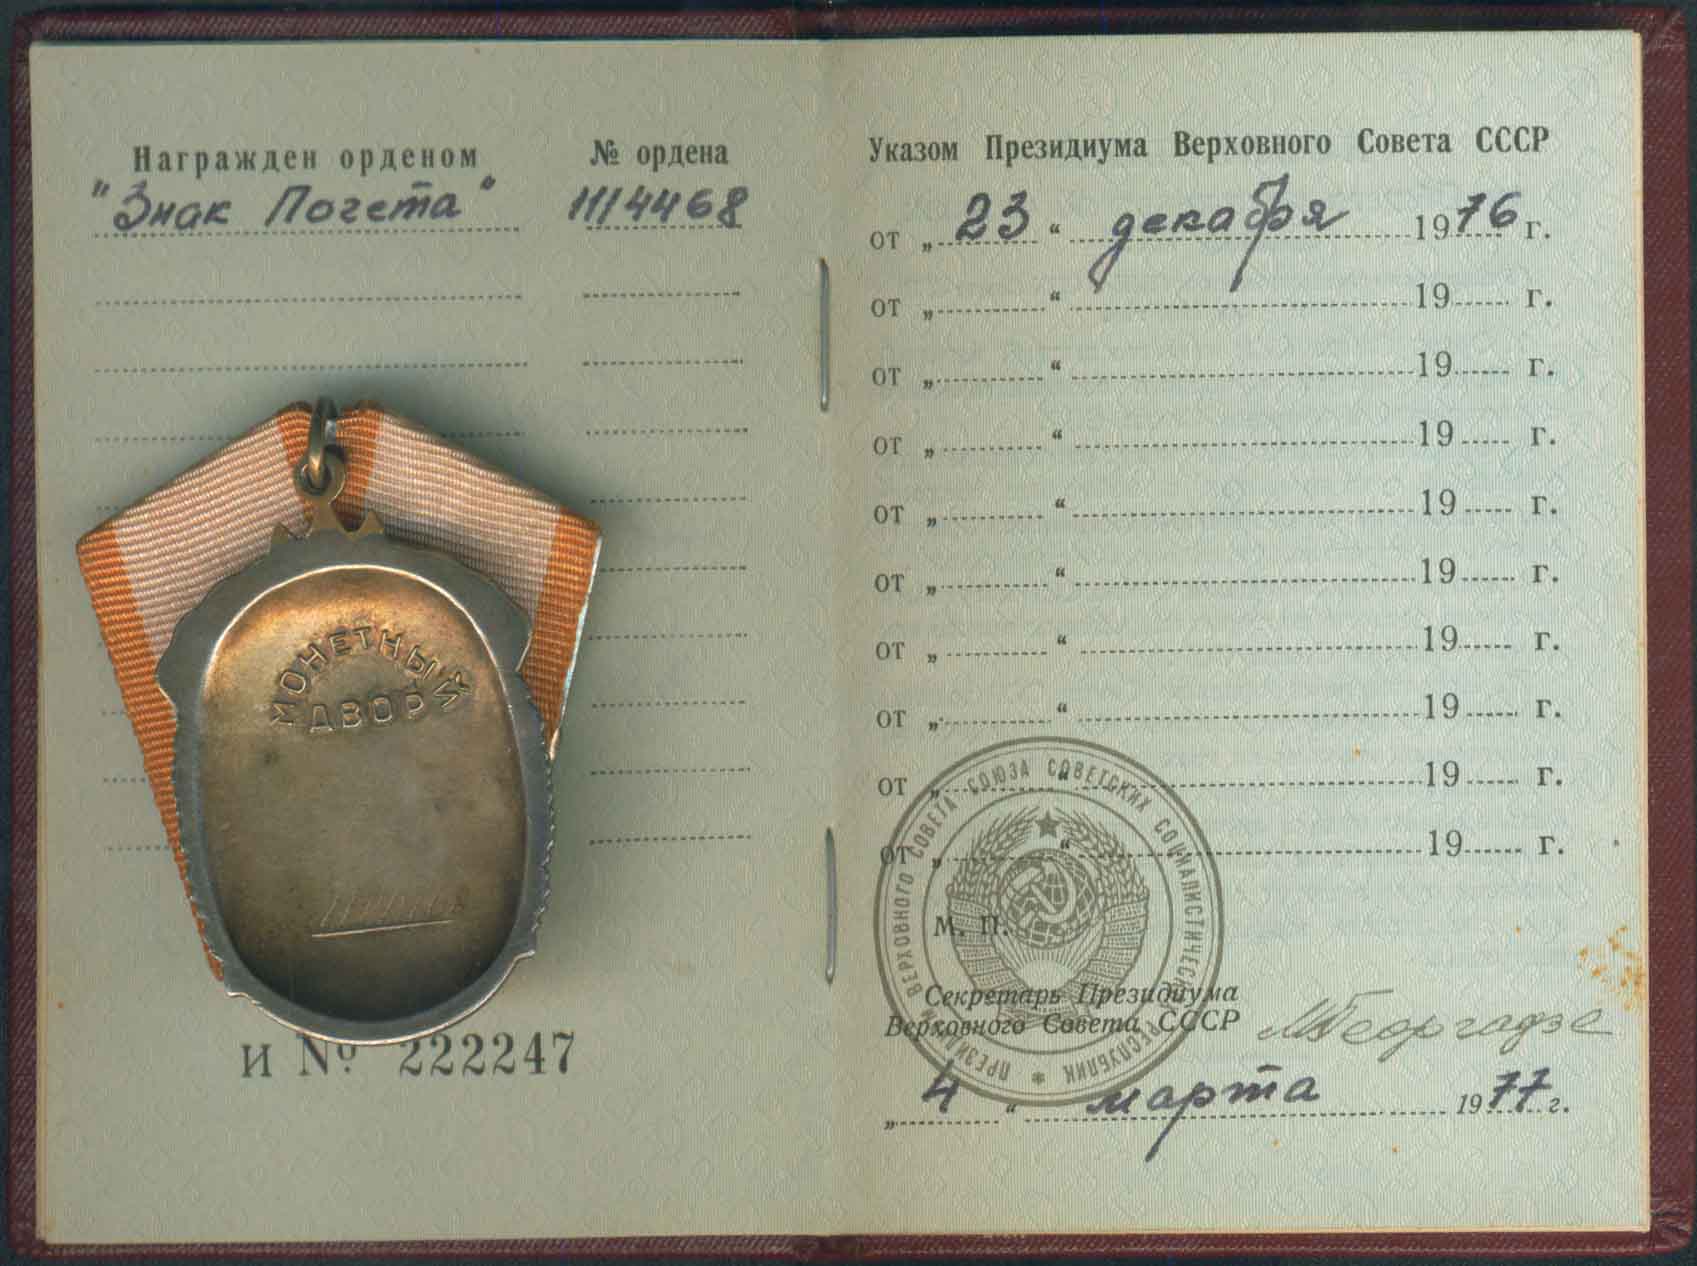 Награжден орденом
№ ордена
"Знак Почета"
1114468
МОНЕТНЫЙ
ДВОР
И № 222247
Указом Президиума Верховного Совета СССР
от „ 23 “ декабря 1976 г.
от „ “ 19 г.
от „ “ 19 г.
от „ “ 19 г.
от „ “ 19 г.
от „ “ 19 г.
от „ “ 19 г.
от „ “ 19 г.
от „ “ 19 г.
от „ “ 19 г.
ПРЕЗИДИУМ ВЕРХОВНОГО СОВЕТА СОЮЗА СОВЕТСКИХ СОЦИАЛИСТИЧЕСКИХ РЕСПУБЛИК *
М. П.
Секретарь Президиума
Верховного Совета СССР
МГеоргадзе
„ 4 “ марта 1977 г.